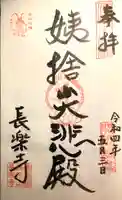 奉拝
姨捨大悲殿
令和四年
五月三日
長楽寺